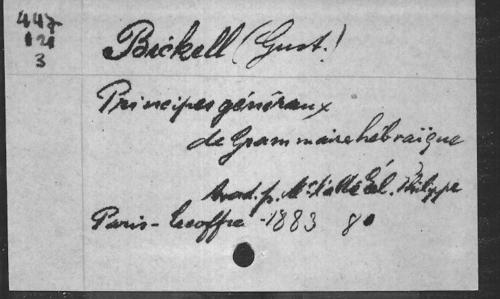 447
121
3
Bickell (Gust.)
Principes généraux
de Grammaire hébraïque
trad. p. Mr. l'abbé Philippe
Paris - Lecoffre - 1883 8°